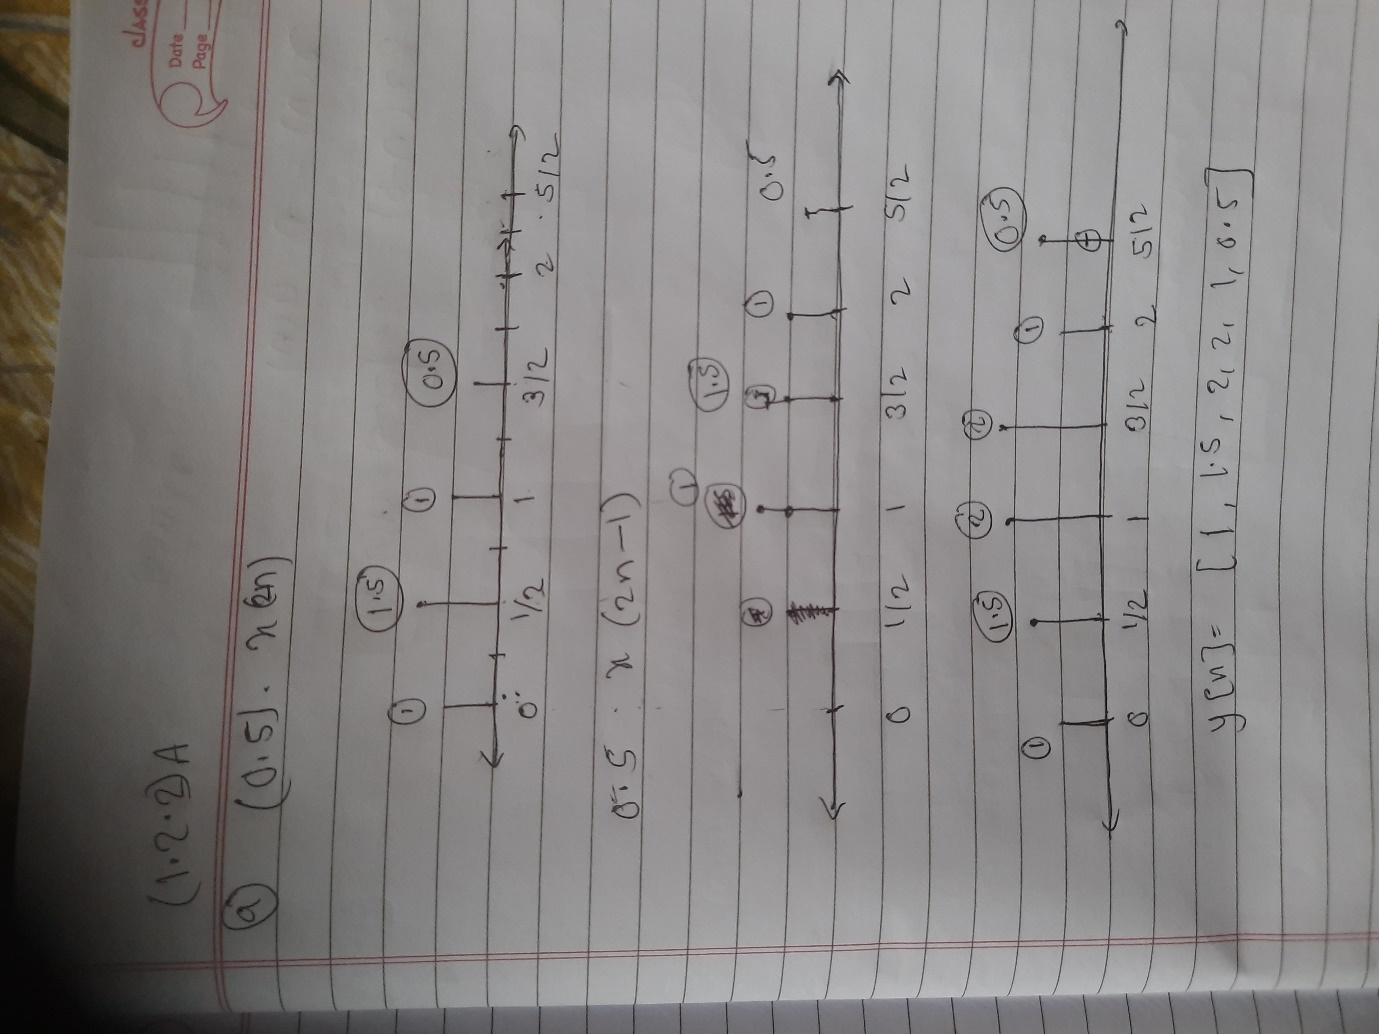 CLASS
Date
Page
(1.2.2)A
(a) (0.5). x(2n)
1 1.5 1 0.5
0 1/2 1 3/2 2 5/2
0.5 . x (2n-1)
1 1.5 1 0.5
0 1/2 1 3/2 2 5/2
1 1.5 2 2 1 0.5
0 1/2 1 3/2 2 5/2
y[n]= [1, 1.5, 2, 2, 1, 0.5]